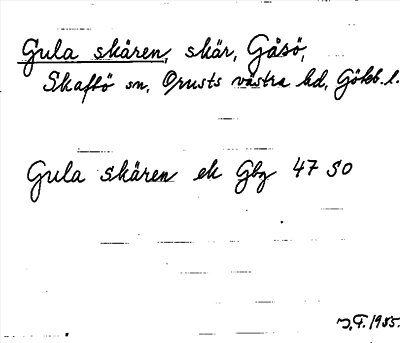 Gula skären, skär, Gåsö,
Skaftö sn, Orusts västra hd, Gökb. l.
Gula skären ek Gbg 47 SO
J. F. 1955.